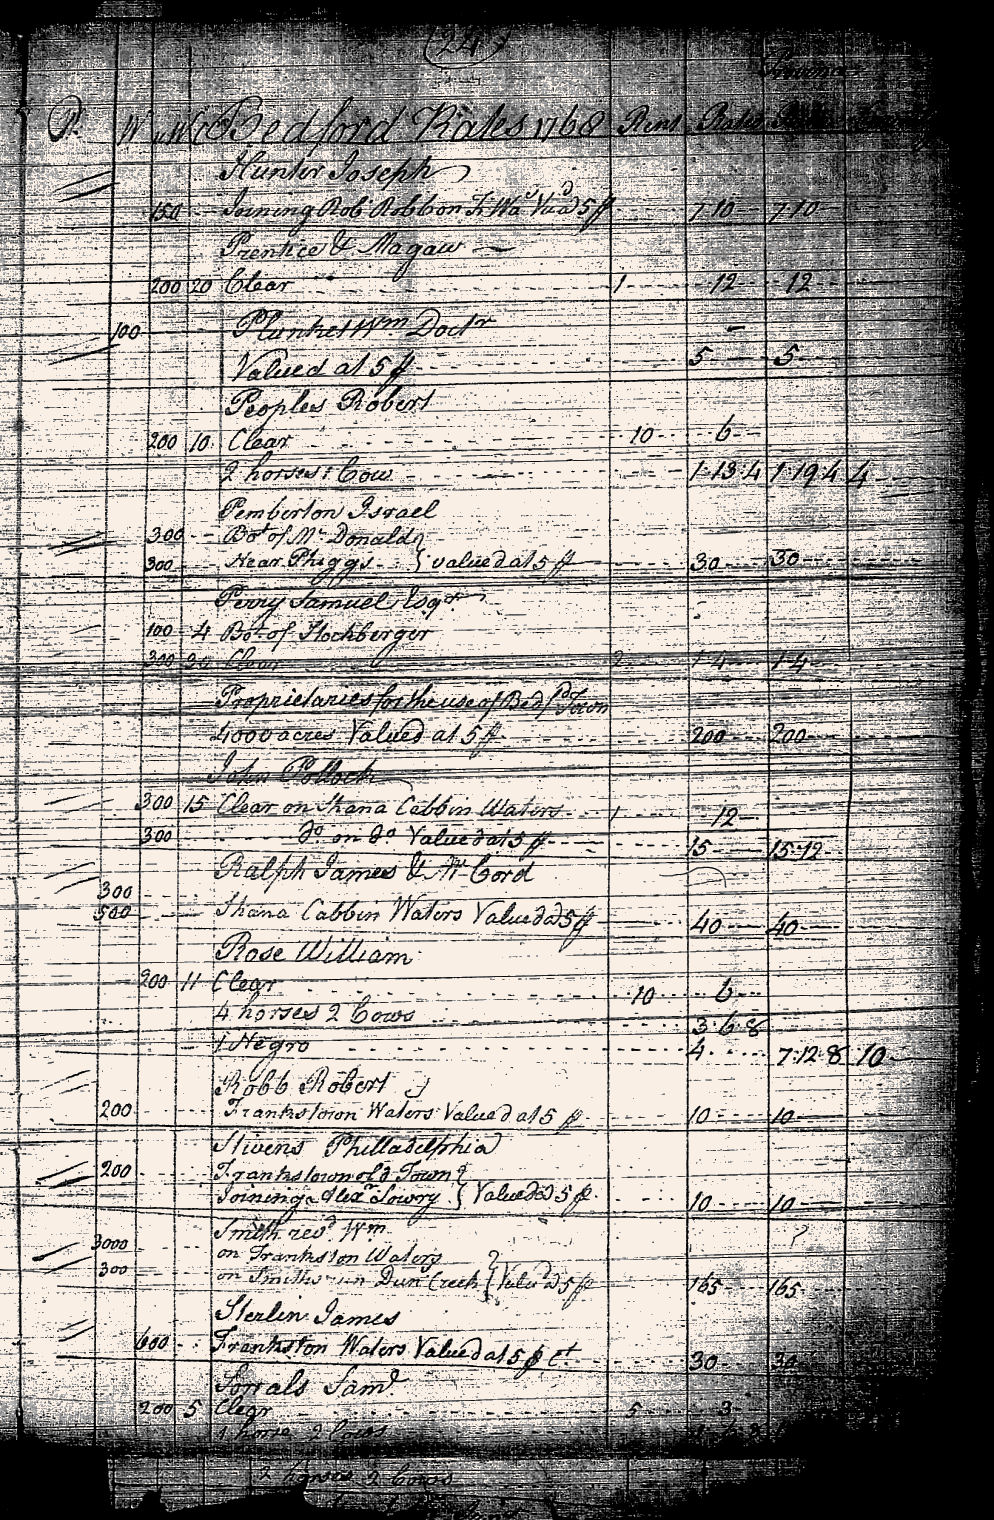 (24)
P. W Bedford Rates 1768 Rent Rates
Hunter Joseph
150 Joining Rob Robison 5 7·10 7·10
Prentice & Magaw
200 20 Clear 1 12 12
100 Plunket Wm Doctr
Valued at 5 5 5
Peoples Robert
200 10 Clear 10 6
2 horses 1 Cow 1·13·4 1·19·4 4
Pemberton Israel
300 Bot of Mc Donald
300 Near Phiggs } valued at 5 30 30
Perry Samuel Esqr
100 4 Bot of Stochberger
300 20 Clear 2 1·4 1·4
Proprietaries for the use of Bedfd Town
4000 acres Valued at 5 200 200
John Pollock
300 15 Clear on Shana Cabbin Waters 1 12
300 do on do Valued at 5 15 15·12
Ralph James & McCord
300
500 Shana Cabbin Waters Valued at 5 40 40
Rose William
200 11 Clear 10 6
4 horses 2 Cows 3·6·8
1 Negro 4 7·12·8 10
Robb Robert
200 Frankstown Waters Valued at 5 10 10
Stivens Philladelphia
200 Frankstown old Town
Joining Alexr Lowry } Valued at 5 10 10
Smith revd Wm
3000 on Frankston Waters
300 on Smiths run Dun Creek } Valued at 5 165 165
Sterlin James
600 Frankston Waters Valued at 5 p Ct 30 30
Sorrals Saml
200 5 Clear 5 3
1 horse 2 Cows
2 horses 2 Cows